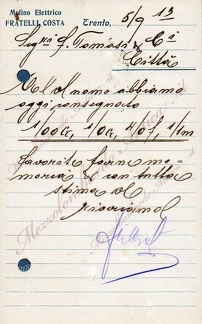 Molino Elettrico
FRATELLI COSTA
Trento, 5/9 13
Sigri G. Tomasi & Ci
Città
All'ol nome abbiamo
oggi consegnato
favorite farne me-
moria & con tutta
stima vi
riveriamo